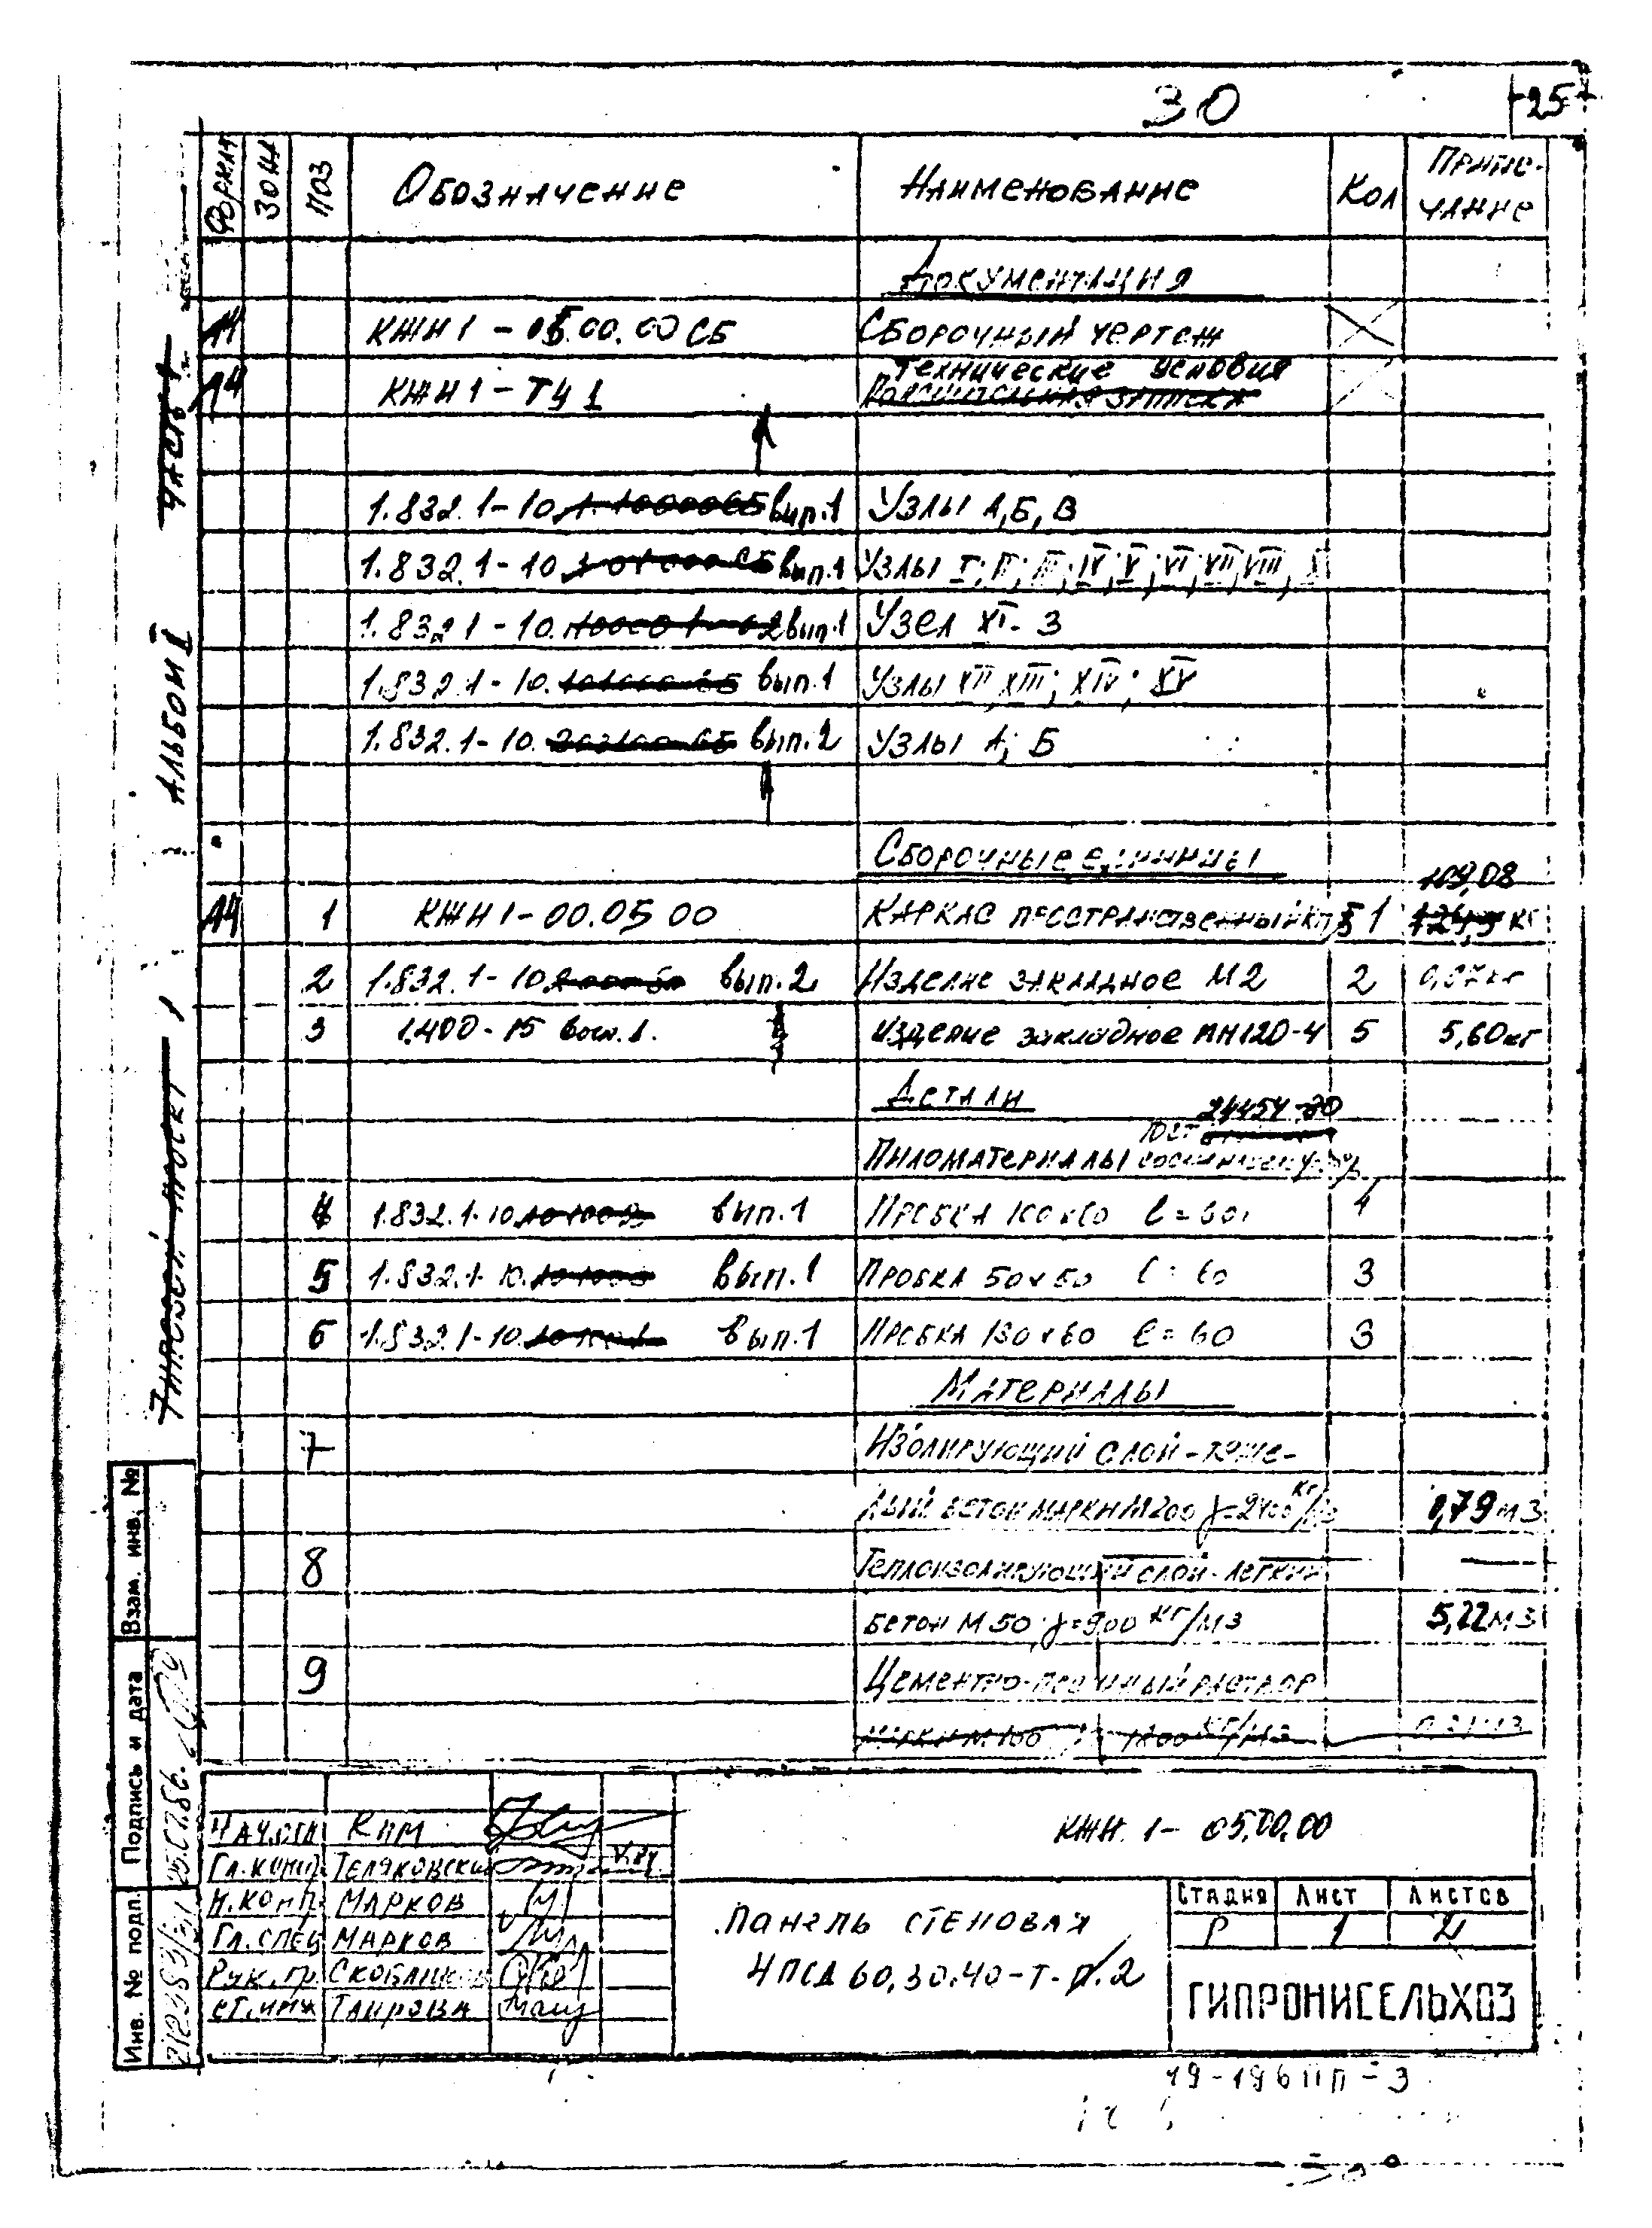 30
25
Формат Зона Поз Обозначение Наименование Кол Приме-
чание
Документация
А4 КЖН1-05.00.00СБ Сборочный чертеж
А4 КЖН1-ТУ1 Технические условия
1.832.1-10. вып.1 Узлы А,Б,В
1.832.1-10. вып.1 Узлы I; II; III; IV; V; VI; VII; VIII; X
1.832.1-10. вып.1 Узел XI-3
1.832.1-10. вып.1 Узлы XII; XIII; XIV; XV
1.832.1-10. вып.2 Узлы А; Б
Сборочные единицы
109,08
А4 1 КЖН1-00.05 00 Каркас пространственный КП5 1 кг
2 1.832.1-10. вып.2 Изделие закладное М2 2 0,87кг
3 1.400-15 вып.1. Изделие закладное МН120-4 5 5,60кг
Детали
24454-80
Пиломатериалы ГОСТ
4 1.832.1-10. вып.1 Пробка 100х60 l=60 4
5 1.832.1-10. вып.1 Пробка 50х60 l=60 3
6 1.832.1-10. вып.1 Пробка 130х60 l=60 3
Материалы
7 Изолирующий слой-тяже-
лый бетон марки М200 γ=2400 кг/м3 1,79м3
8 Теплоизолирующий слой-легкий
бетон М50, γ=900 кг/м3 5,22м3
9 Цементно-песчаный раствор
марки М100 1800 кг/м3
Альбом I
Часть 1
Типовой проект
Взам. инв. №
Подпись и дата
Инв. № подп.
Нач.отд Ким
Гл.констр Теляковский
Н.контр Марков
Гл.спец Марков
Рук.гр.
Ст.инж Таирова
КЖН 1-05.00.00
Панель стеновая
4ПСД60.30.40-Т-П.2
Стадия Лист Листов
Р 1 2
ГИПРОНИСЕЛЬХОЗ
19-196ПП-3
30